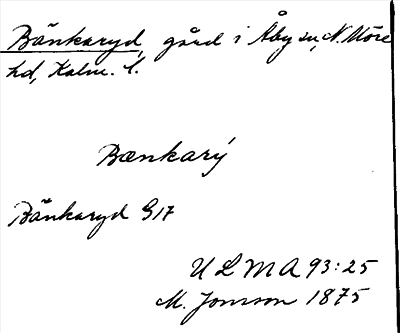 Bänkaryd, gård i Åby sn, N. Möre
hd, Kalm. l.
Bænkarý
Bänkaryd G17
ULMA 93:25
M. Jonsson 1875